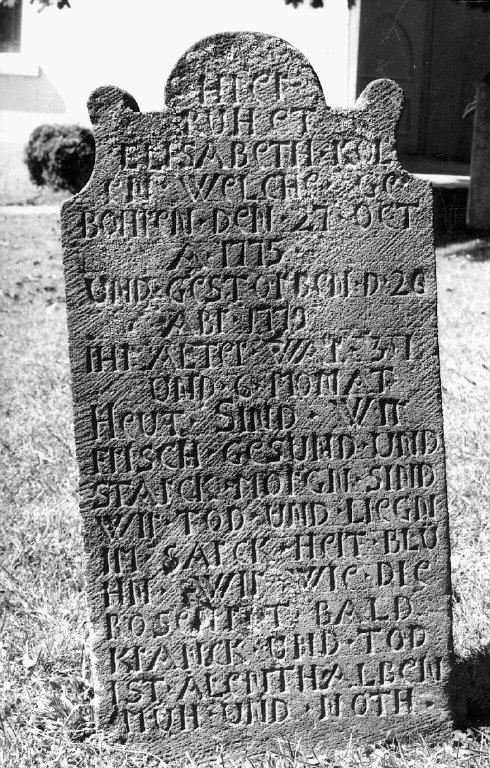 HIER
RUHET
ELISABETH·KOL
EN·WELCHE·GE
BOHREN·DEN·27·OCT
A·1775
UND·GESTORBEN·D·26
ABR·1779
IHR·ALTER·WAR·3·I
UND·6·MONAT
HEUT·SIND·WIR
FRISCH·GESUND·UND
STARCK·MORGN·SIND
WIR·TOD·UND·LIEGN
IM·SARCK·HEIT·BLÜ
HN·WIR·WIE·DIE
ROSEN·RT·BALD
KRANCK·UND·TOD
IST·ALENTHALBEN
MÜH·UND·NOTH·